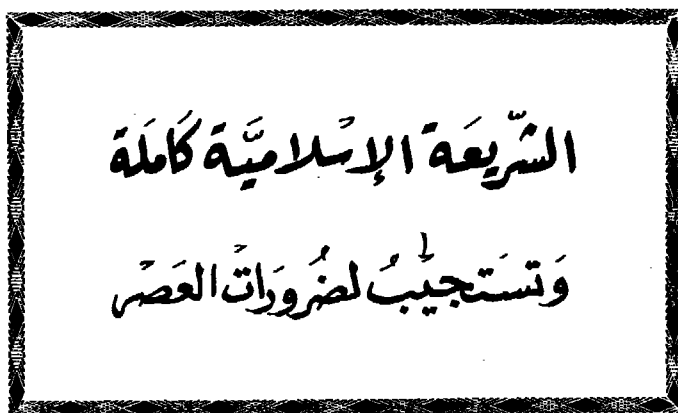 الشّريعَة الإسْلاميَّة كَاملَة
وَتسَتجيْبُ لضُرورَاتْ العَصْر